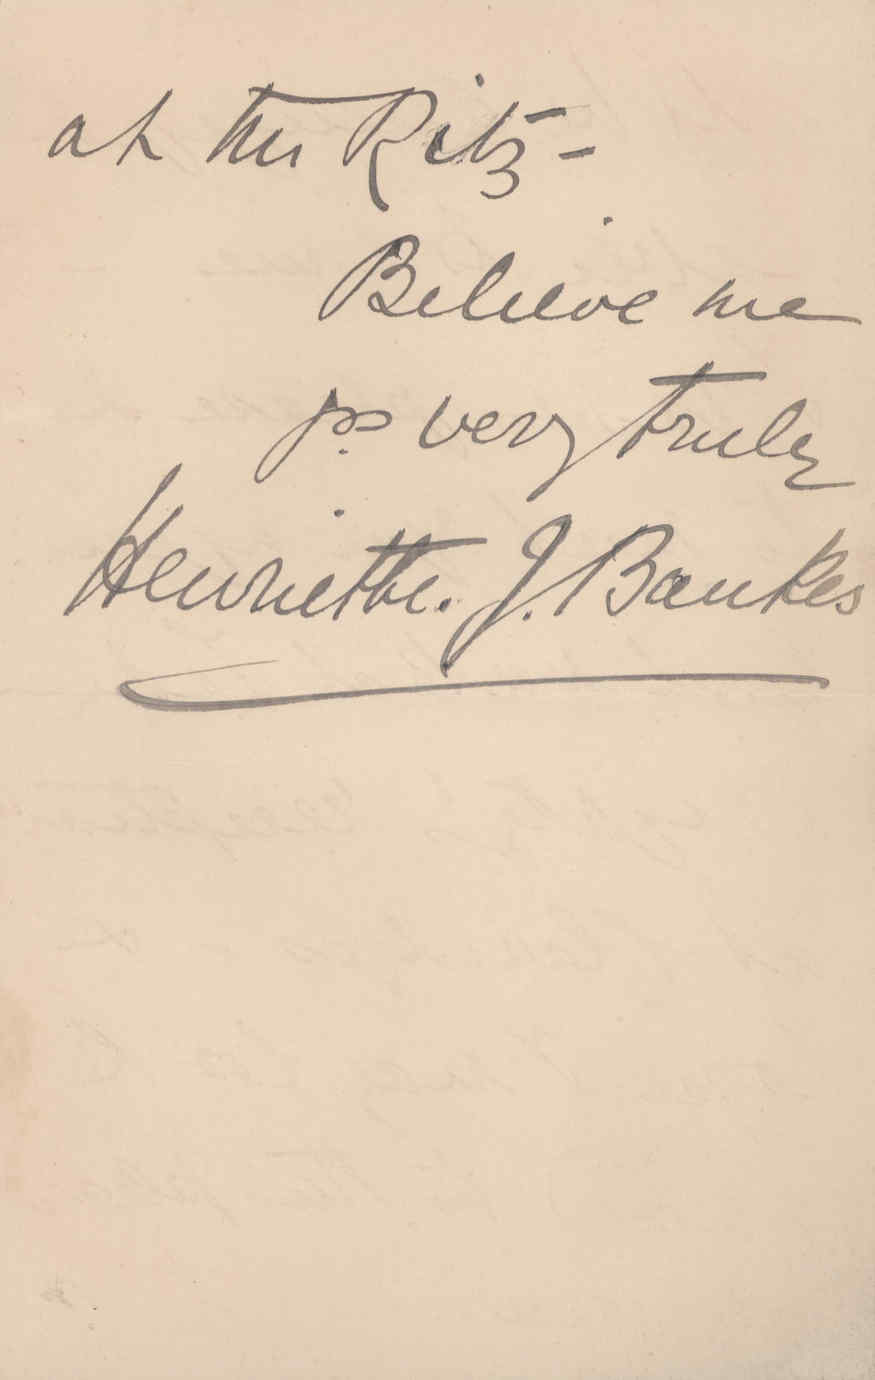 at the Ritz –
Believe me
yrs very truly
Henriette. J. Bankes